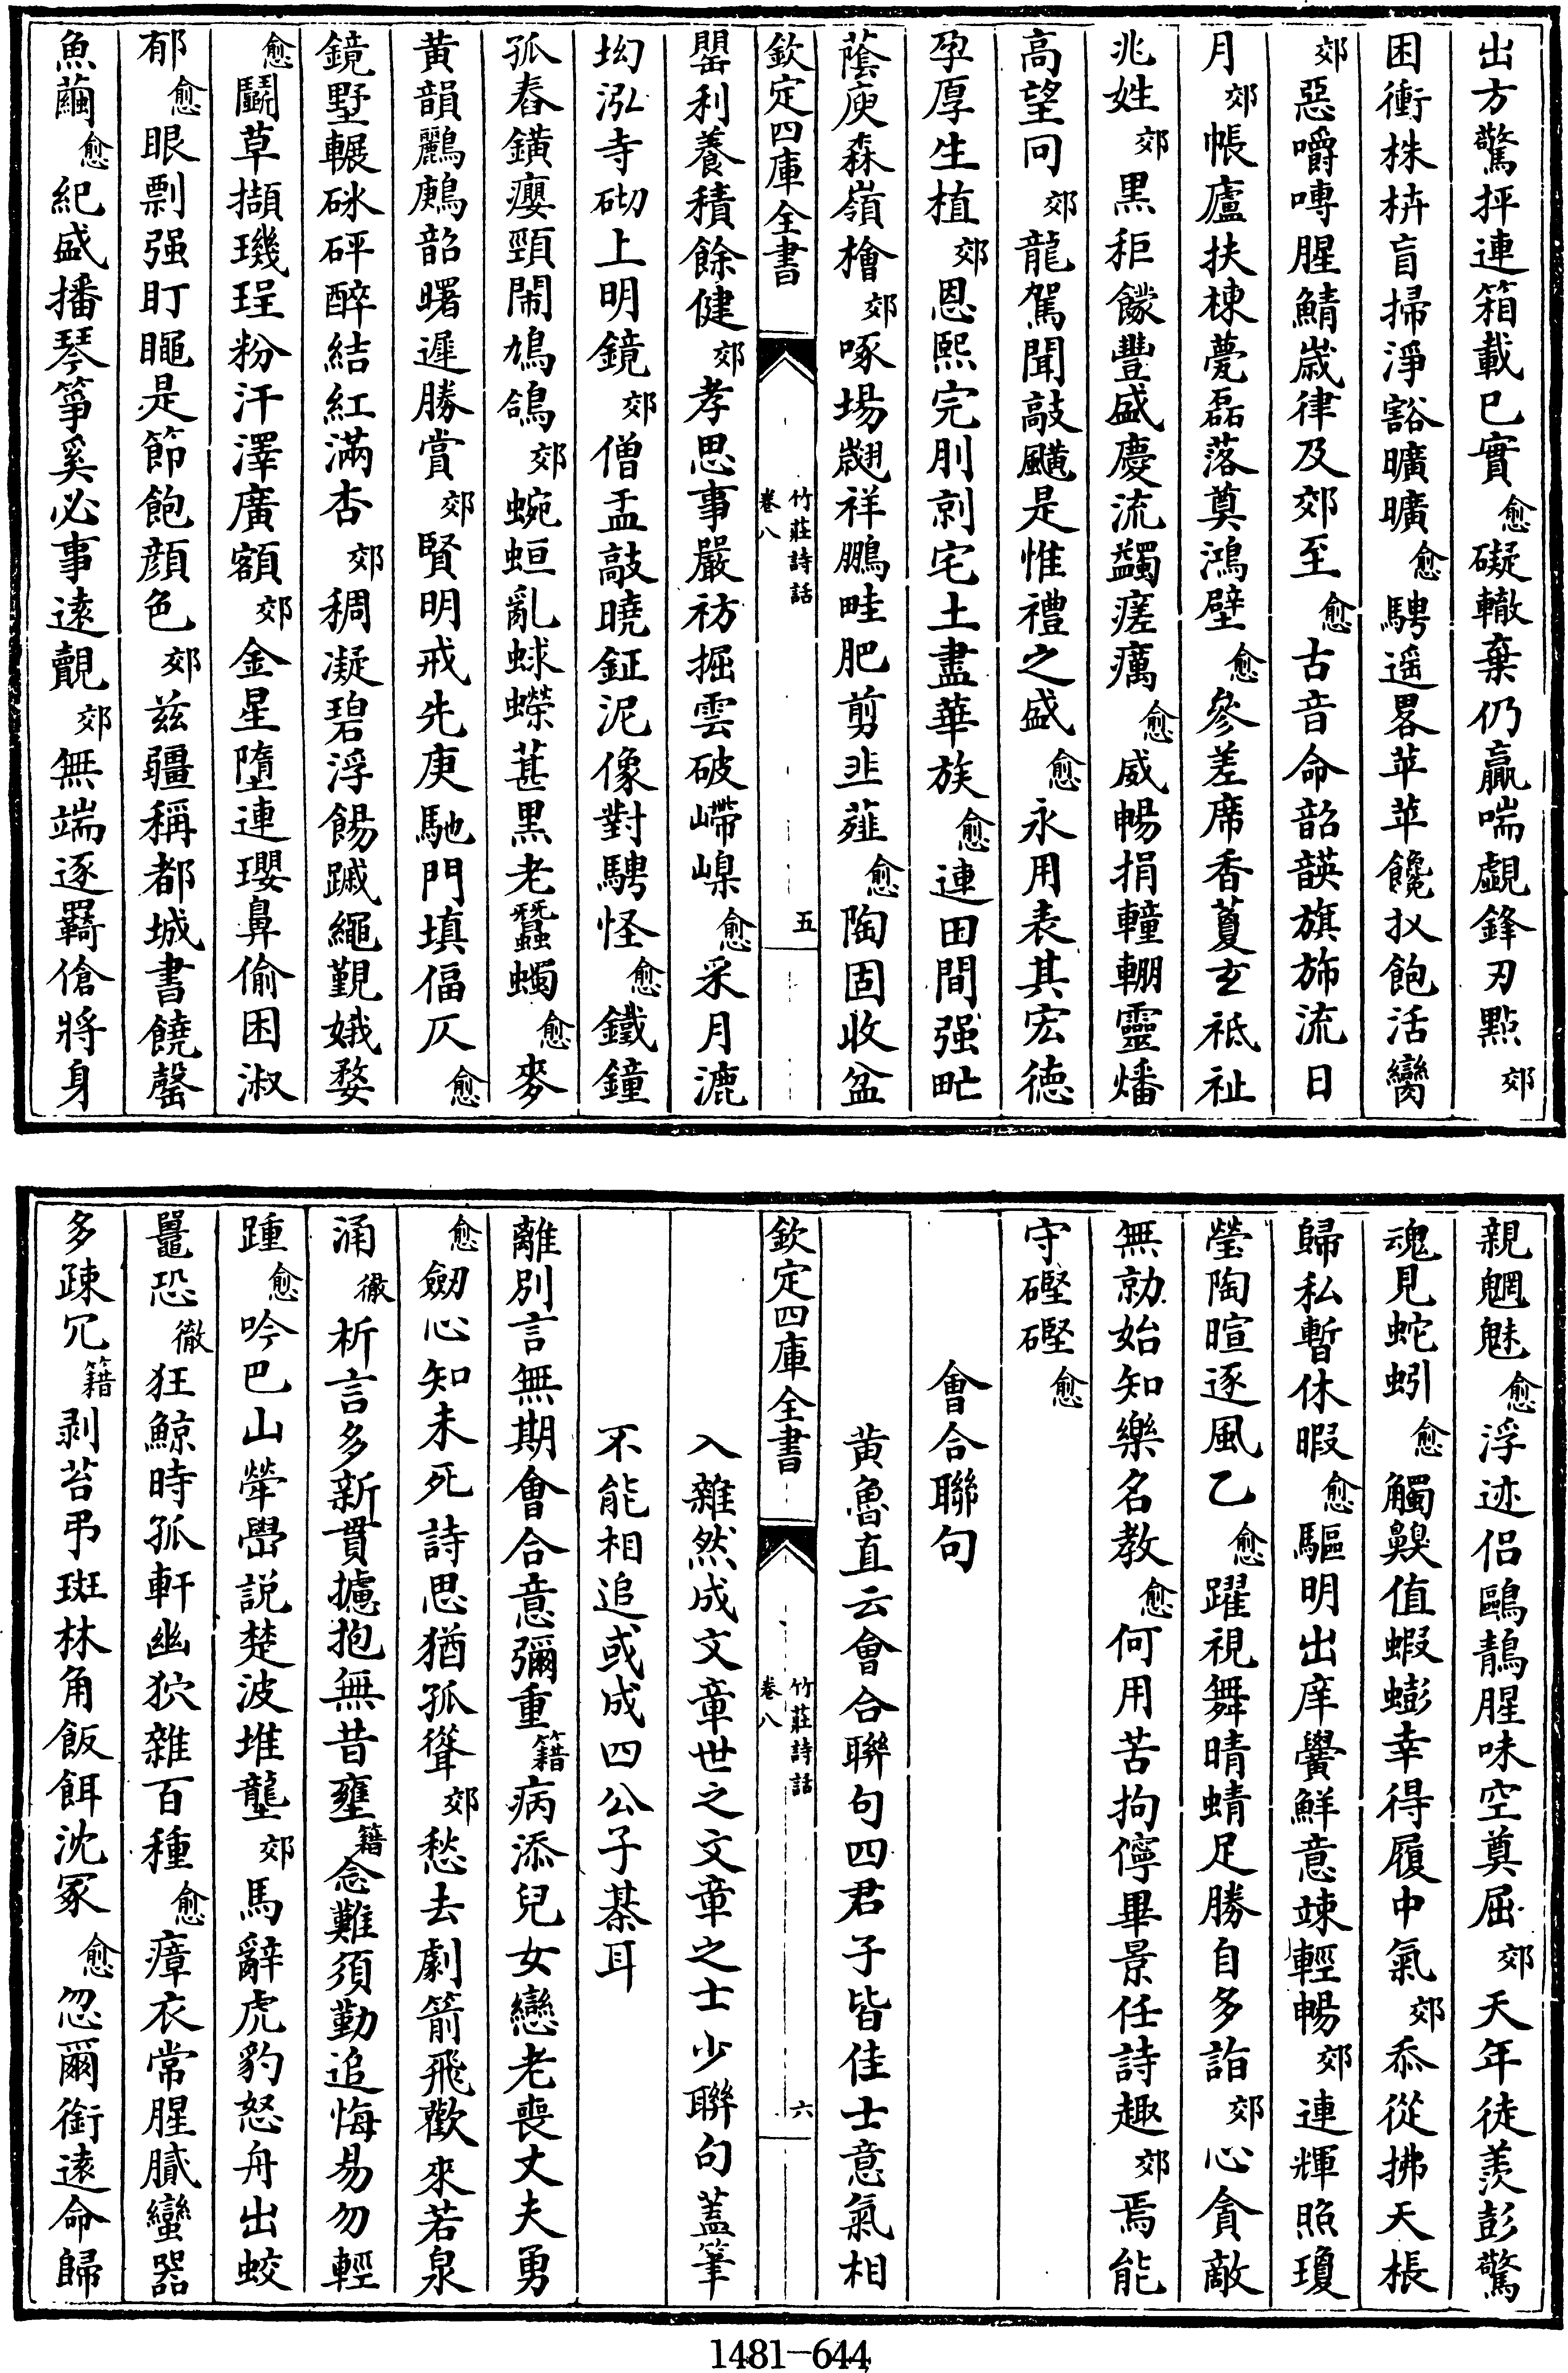 出方驚抨連箱載已實愈礙轍棄仍贏喘覷鋒刃點郊
困衝株枿盲掃淨豁曠曠愈騁遥畧苹苹饞扠飽活臠
郊惡嚼嘷腥鯖歳律及郊至愈古音命韶韺旗斾流日
月郊帳廬扶棟甍磊落奠鴻壁愈參差席香藑玄祗祉
兆姓郊黒秬饛豐盛慶流蠲瘥癘愈威暢捐轒輣靈燔
高望冋郊龍駕聞敲颹是惟禮之盛愈永用表其宏徳
孕厚生植郊恩熙完刖剠宅土盡華族愈連田間强甿
蔭庾森嶺檜郊啄場翽祥鵬畦肥剪韭薤愈陶固收盆
欽定四庫全書
竹莊詩話
卷八
五
罌利養積餘健郊孝思事嚴祊掘雲破嵽嵲愈采月漉
坳泓寺砌上明鏡郊僧盂敲曉鉦泥像對騁怪愈鐵鐘
孤舂鍠癭頸鬧鳩鴿郊蜿蜒亂蛷蠑葚黒老蠶蠋愈麥
黄韻鸝鶊韶曙遲勝賞郊賢明戒先庚馳門填偪仄愈
鏡墅輾砯砰醉結紅滿杏郊稠凝碧浮餳蹴繩覲娥婺
愈鬬草擷璣珵粉汗澤廣額郊金星墮連瓔鼻偷困淑
郁愈眼剽强盯䁅是節飽顔色郊兹疆稱都城書饒罄
魚繭愈紀盛播琴箏奚必事逺覿郊無端逐羈傖將身
親魍魅愈浮迹侣鷗鶄腥味空奠屈郊天年徒羡彭驚
魂見蛇蚓愈觸鼽值蝦蟛幸得履中氣郊忝從拂天棖
歸私暫休暇愈驅明出庠黌鮮意竦輕暢郊連輝照瓊
瑩陶暄逐風乙愈躍視舞晴蜻足勝自多詣郊心貪敵
無勍始知樂名教愈何用苦拘儜畢景任詩趣郊焉能
守硜硜愈
會合聯句
黄魯直云會合聯句四君子皆佳士意氣相
欽定四庫全書
竹莊詩話
卷八
六
入雜然成文章世之文章之士少聯句蓋筆
不能相追或成四公子棊耳
離別言無期會合意彌重籍病添兒女戀老喪丈夫勇
愈劒心知未死詩思猶孤聳郊愁去劇箭飛歡來若泉
涌徹析言多新貫攄抱無昔壅籍念難須勤追悔易勿輕
踵愈吟巴山犖嶨説楚波堆壟郊馬辭虎豹怒舟出蛟
鼉恐徹狂鯨時孤軒幽狖雜百種愈瘴衣常腥膩蠻器
多疎冗籍剥苔弔斑林角飯餌沈冢愈忽爾銜逺命歸
1481-644